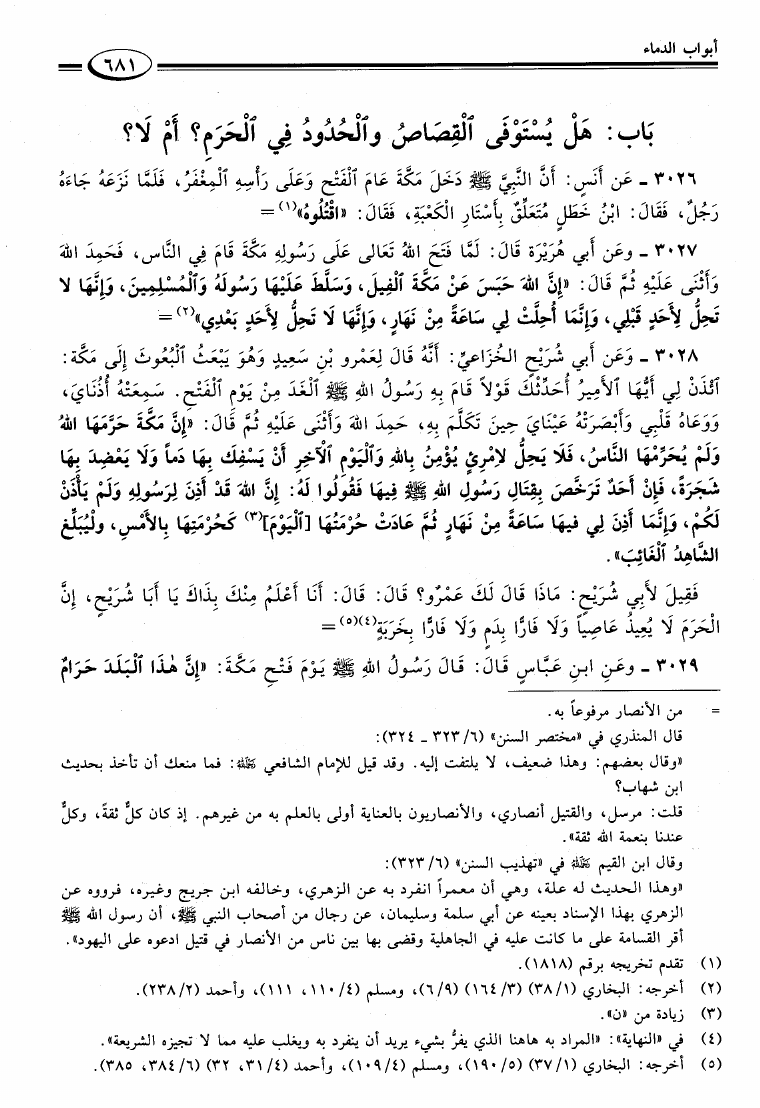 أبواب الدماء
٦٨١
بَاب: هَلْ يُسْتَوْفَى ٱلْقِصَاصُ وٱلْحُدُودُ فِي ٱلْحَرَمِ؟ أَمْ لَا؟
٣٠٢٦ ـ عَن أَنَسٍ: أَنَّ النَّبِيَّ ﷺ دَخَلَ مَكَّةَ عَامَ الْفَتْحِ وَعَلَى رَأْسِهِ الْمِغْفَرُ، فَلَمَّا نَزَعَهُ جَاءَهُ
رَجُلٌ، فَقَالَ: ابْنُ خَطَلٍ مُتَعَلِّقٌ بِأَسْتَارِ الْكَعْبَةِ، فَقَالَ: «اقْتُلُوهُ»(١) =
٣٠٢٧ ـ وعَن أَبي هُرَيْرَةَ قَالَ: لَمَّا فَتَحَ اللهُ تَعَالى عَلَى رَسُولِهِ مَكَّةَ قَامَ فِي النَّاس، فَحَمِدَ اللهَ
وَأَثْنَى عَلَيْهِ ثُمَّ قَالَ: «إِنَّ اللهَ حَبَسَ عَنْ مَكَّةَ الْفِيلَ، وَسَلَّطَ عَلَيْهَا رَسُولَهُ وَالْمُسْلِمِينَ، وَإِنَّهَا لا
تَحِلُّ لِأَحَدٍ قَبْلِي، وَإِنَّمَا أُحِلَّتْ لِي سَاعَةً مِنْ نَهَارٍ، وَإِنَّهَا لَا تَحِلُّ لِأَحَدٍ بَعْدِي»(٢) =
٣٠٢٨ ـ وَعَن أَبي شُرَيْحٍ الخُزَاعيِّ: أَنَّهُ قَالَ لِعَمْرِو بْنِ سَعِيدٍ وَهُوَ يَبْعَثُ الْبُعُوثَ إِلَى مَكَّةَ:
ائْذَنْ لِي أَيُّهَا الأَمِيرُ أُحَدِّثْكَ قَوْلاً قَامَ بِهِ رَسُولُ اللهِ ﷺ الْغَدَ مِنْ يَوْمِ الْفَتْحِ. سَمِعَتْهُ أُذُنَايَ،
وَوَعَاهُ قَلْبِي وَأَبْصَرَتْهُ عَيْنَايَ حِينَ تَكَلَّمَ بِهِ، حَمِدَ اللهَ وَأَثْنَى عَلَيْهِ ثُمَّ قَالَ: «إِنَّ مَكَّةَ حَرَّمَهَا اللهُ
وَلَمْ يُحَرِّمْهَا النَّاسُ، فَلَا يَحِلُّ لاِمْرِئٍ يُؤْمِنُ بِاللهِ وَالْيَوْمِ الْآخِرِ أَنْ يَسْفِكَ بِهَا دَماً وَلَا يَعْضِدَ بِهَا
شَجَرَةً، فَإِنْ أَحَدٌ تَرَخَّصَ بِقِتَالِ رَسُولِ اللهِ ﷺ فِيهَا فَقُولُوا لَهُ: إِنَّ اللهَ قَدْ أَذِنَ لِرَسُولِهِ وَلَمْ يَأْذَنْ
لَكُمْ، وَإِنَّمَا أَذِنَ لِي فيهَا سَاعَةً مِنْ نَهَارٍ ثُمَّ عَادَتْ حُرْمَتُهَا [الْيَوْمَ](٣) كَحُرْمَتِهَا بِالأَمْسِ، ولْيُبَلِّغِ
الشَّاهِدُ الْغَائِبَ».
فَقِيلَ لأَبي شُرَيْحٍ: مَاذَا قَالَ لَكَ عَمْرٌو؟ قَالَ: قَالَ: أَنَا أَعْلَمُ مِنْكَ بِذَاكَ يَا أَبَا شُرَيْحٍ، إِنَّ
الْحَرَمَ لَا يُعِيذُ عَاصِياً وَلَا فَارًّا بِدَمٍ وَلَا فَارًّا بِخَرَبَةٍ(٤)(٥) =
٣٠٢٩ ـ وعَنِ ابنِ عَبَّاسٍ قَالَ: قَالَ رَسُولُ اللهِ ﷺ يَوْمَ فَتْحِ مَكَّةَ: «إِنَّ هٰذَا الْبَلَدَ حَرَامٌ
= من الأنصار مرفوعاً به.
قال المنذري في «مختصر السنن» (٦/ ٣٢٣ ـ ٣٢٤):
«وقال بعضهم: وهذا ضعيف، لا يلتفت إليه. وقد قيل للإمام الشافعي رحمه الله: فما منعك أن تأخذ بحديث
ابن شهاب؟
قلت: مرسل، والقتيل أنصاري، والأنصاريون بالعناية أولى بالعلم به من غيرهم. إذ كان كلٌّ ثقةً، وكلٌّ
عندنا بنعمة الله ثقة».
وقال ابن القيم رحمه الله في «تهذيب السنن» (٦/ ٣٢٣):
«وهذا الحديث له علة، وهي أن معمراً انفرد به عن الزهري، وخالفه ابن جريج وغيره، فرووه عن
الزهري بهذا الإسناد بعينه عن أبي سلمة وسليمان، عن رجال من أصحاب النبي ﷺ، أن رسول الله ﷺ
أقر القسامة على ما كانت عليه في الجاهلية وقضى بها بين ناس من الأنصار في قتيل ادعوه على اليهود».
(١) تقدم تخريجه برقم (١٨١٨).
(٢) أخرجه: البخاري (١/ ٣٨) (٣/ ١٦٤) (٩/ ٦)، ومسلم (٤/ ١١٠، ١١١)، وأحمد (٢/ ٢٣٨).
(٣) زيادة من «ن».
(٤) في «النهاية»: «المراد به هاهنا الذي يفرُّ بشيء يريد أن ينفرد به ويغلب عليه مما لا تجيزه الشريعة».
(٥) أخرجه: البخاري (١/ ٣٧) (٥/ ١٩٠)، ومسلم (٤/ ١٠٩)، وأحمد (٤/ ٣١، ٣٢) (٦/ ٣٨٤، ٣٨٥).